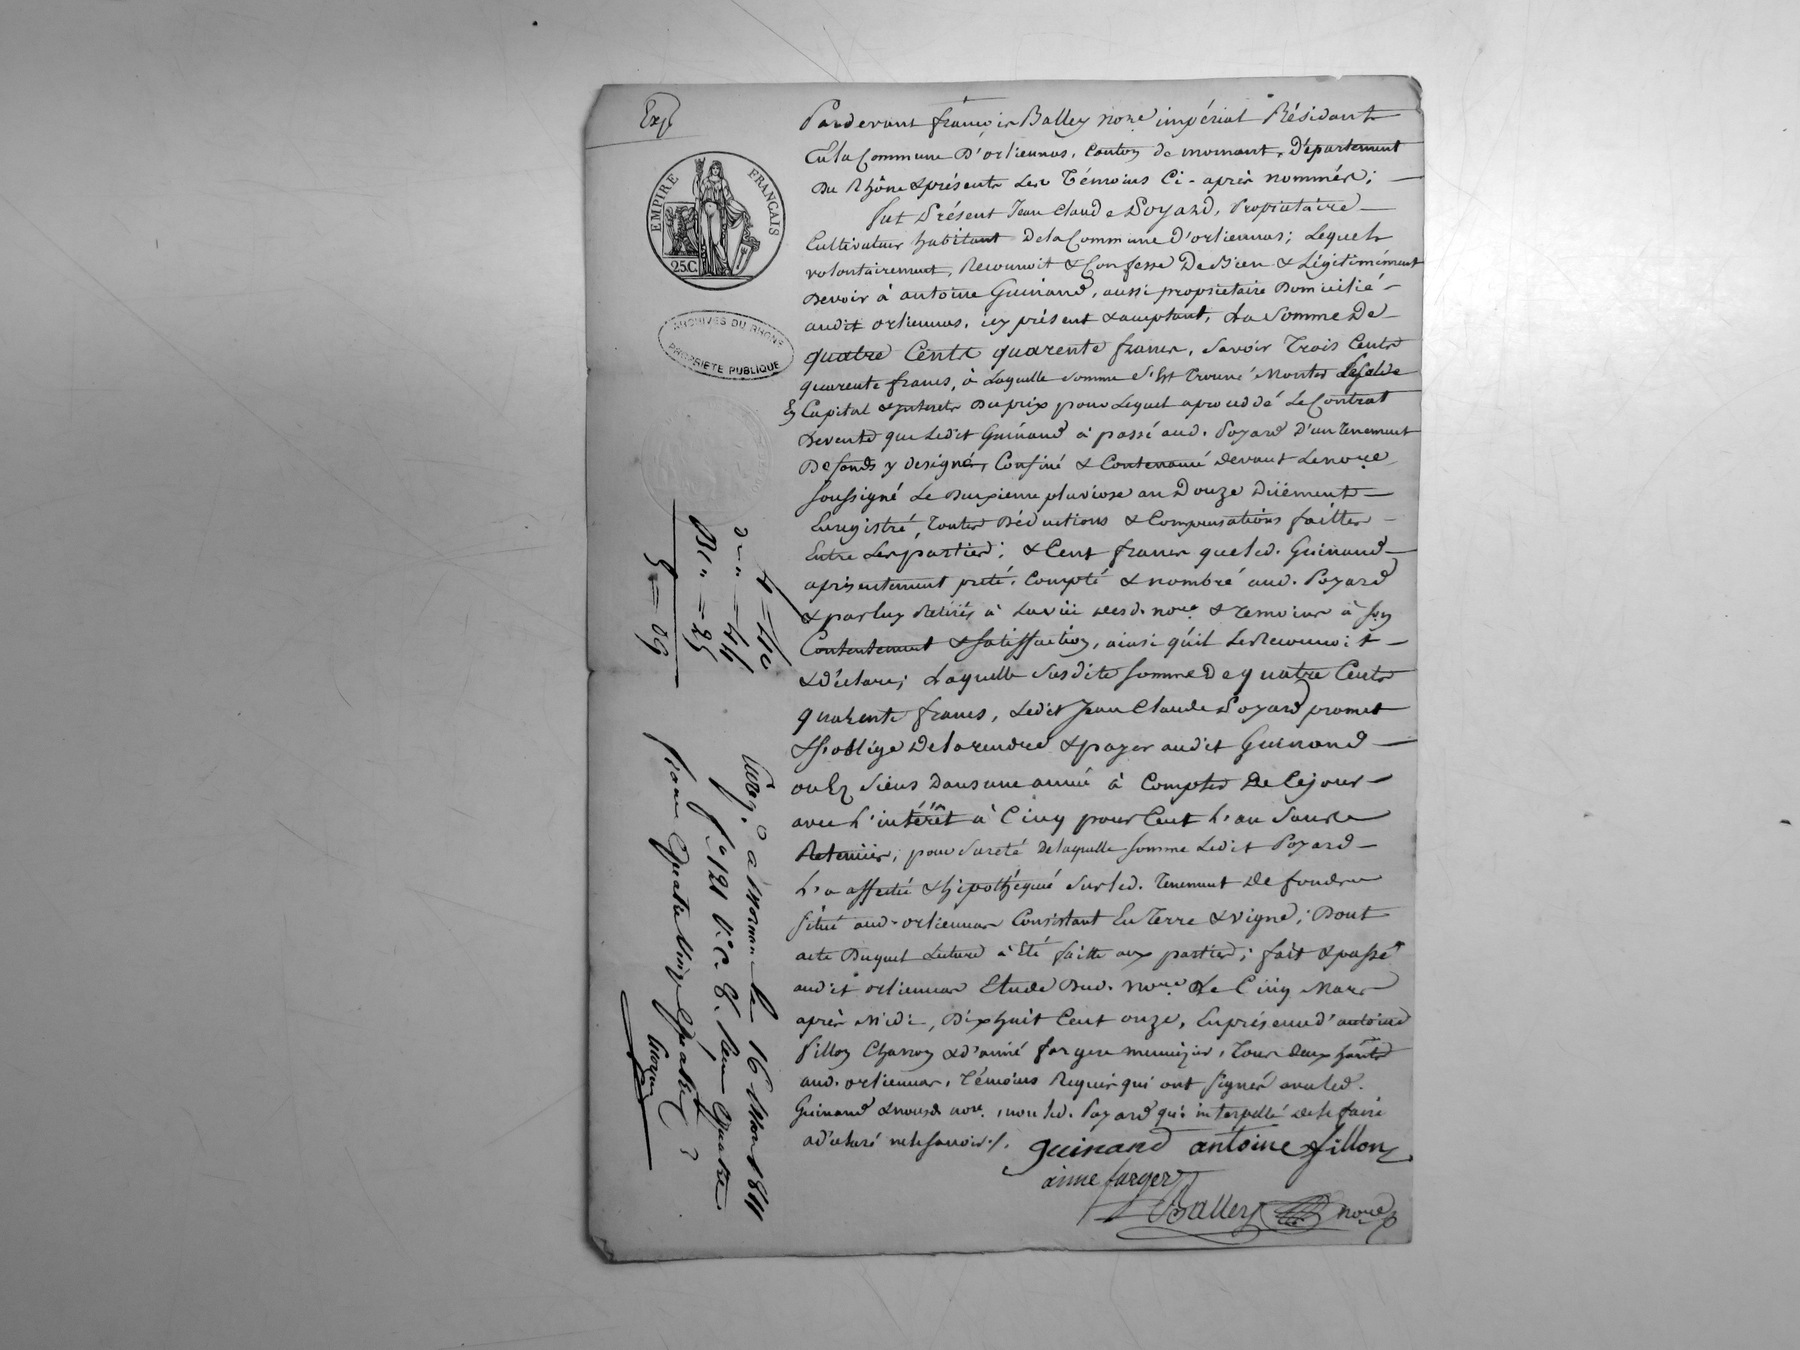 Exp.
EMPIRE FRANÇAIS
25.C.
ARCHIVES DU RHÔNE
PROPRIÉTÉ PUBLIQUE
Pardevant françois Balley nore. impérial Résidant
En la Commune D'orliennas, Canton de mornant, Département
Du Rhône & présents Les Témoins Ci-après nommés;
fut Présent Jean Claude Poyard, Propriétaire
Cultivateur habitant De la Commune d'orliennas; Lequel
volontairement, Reconnoit & Confesse De Bien & Légitimément
Devoir à antoine Guinand, aussi propriétaire Domicilié
audit orliennas, icy présent & acceptant, La Somme De
quatre Cents quarente francs, Savoir Trois Cents
quarente francs, à Laquelle Somme S'est Trouvé Monter Le Solde
En Capital & Interets Du prix pour Lequel a procédé Le Contrat
De vente que Ledit Guinand à passé aud. Poyard D'un Tenement
De fonds y designé, Confiné & Contenancé devant Le nore.
soussigné Le Deuxieme pluviose an Douze Düement
Enregistré, Toutes Déductions & Compensations faittes
Entre Les parties; & Cent francs que led. Guinand
a présentement preté, Compté & nombré aud. Poyard
& par luy Retirés à La vüe desd. nore. & Temoins à son
Contentement & satisfaction, ainsi qu'il Le Reconnoit
& déclare; Laquelle Susdite somme De quatre Cents
quarente francs, Ledit Jean Claude Poyard promet
& s'oblige De la rendre & payer audit Guinand
ou Ez Siens Dans une année à Compter De Ce jour
avec L'intérêt à Cinq pour Cent L'an Sans
Retenües; pour Sureté de laquelle somme Ledit Poyard
L'a affecté & hipothéqué sur led. Tenement De fonds
situé aud. orliennas Consistant En Terre & vigne; Dont
acte Duquel Lecture à Eté faitte aux parties; fait & passé
audit orliennas Etude Dud. Nore. Le Cinq Mars
après Midi, Dix huit Cent onze, En présence d'antoine
fillon Charron & d'aimé fargere menuizier, Tous deux hants.
aud. orliennas, Témoins Requis qui ont signés avec led.
Guinand & nousd. nore. non led. Poyard qui interpellé de le faire
a déclaré ne le savoir ./.
guinand antoine fillon
aimé farger
Balley nore
4 = 40
= 44
= 25
5 = 09
Enreg. à Mornant le 16 Mars 1811
fo. 121 vo. c. 8. Reçu Quatre
francs Quatre vingt quatre c.